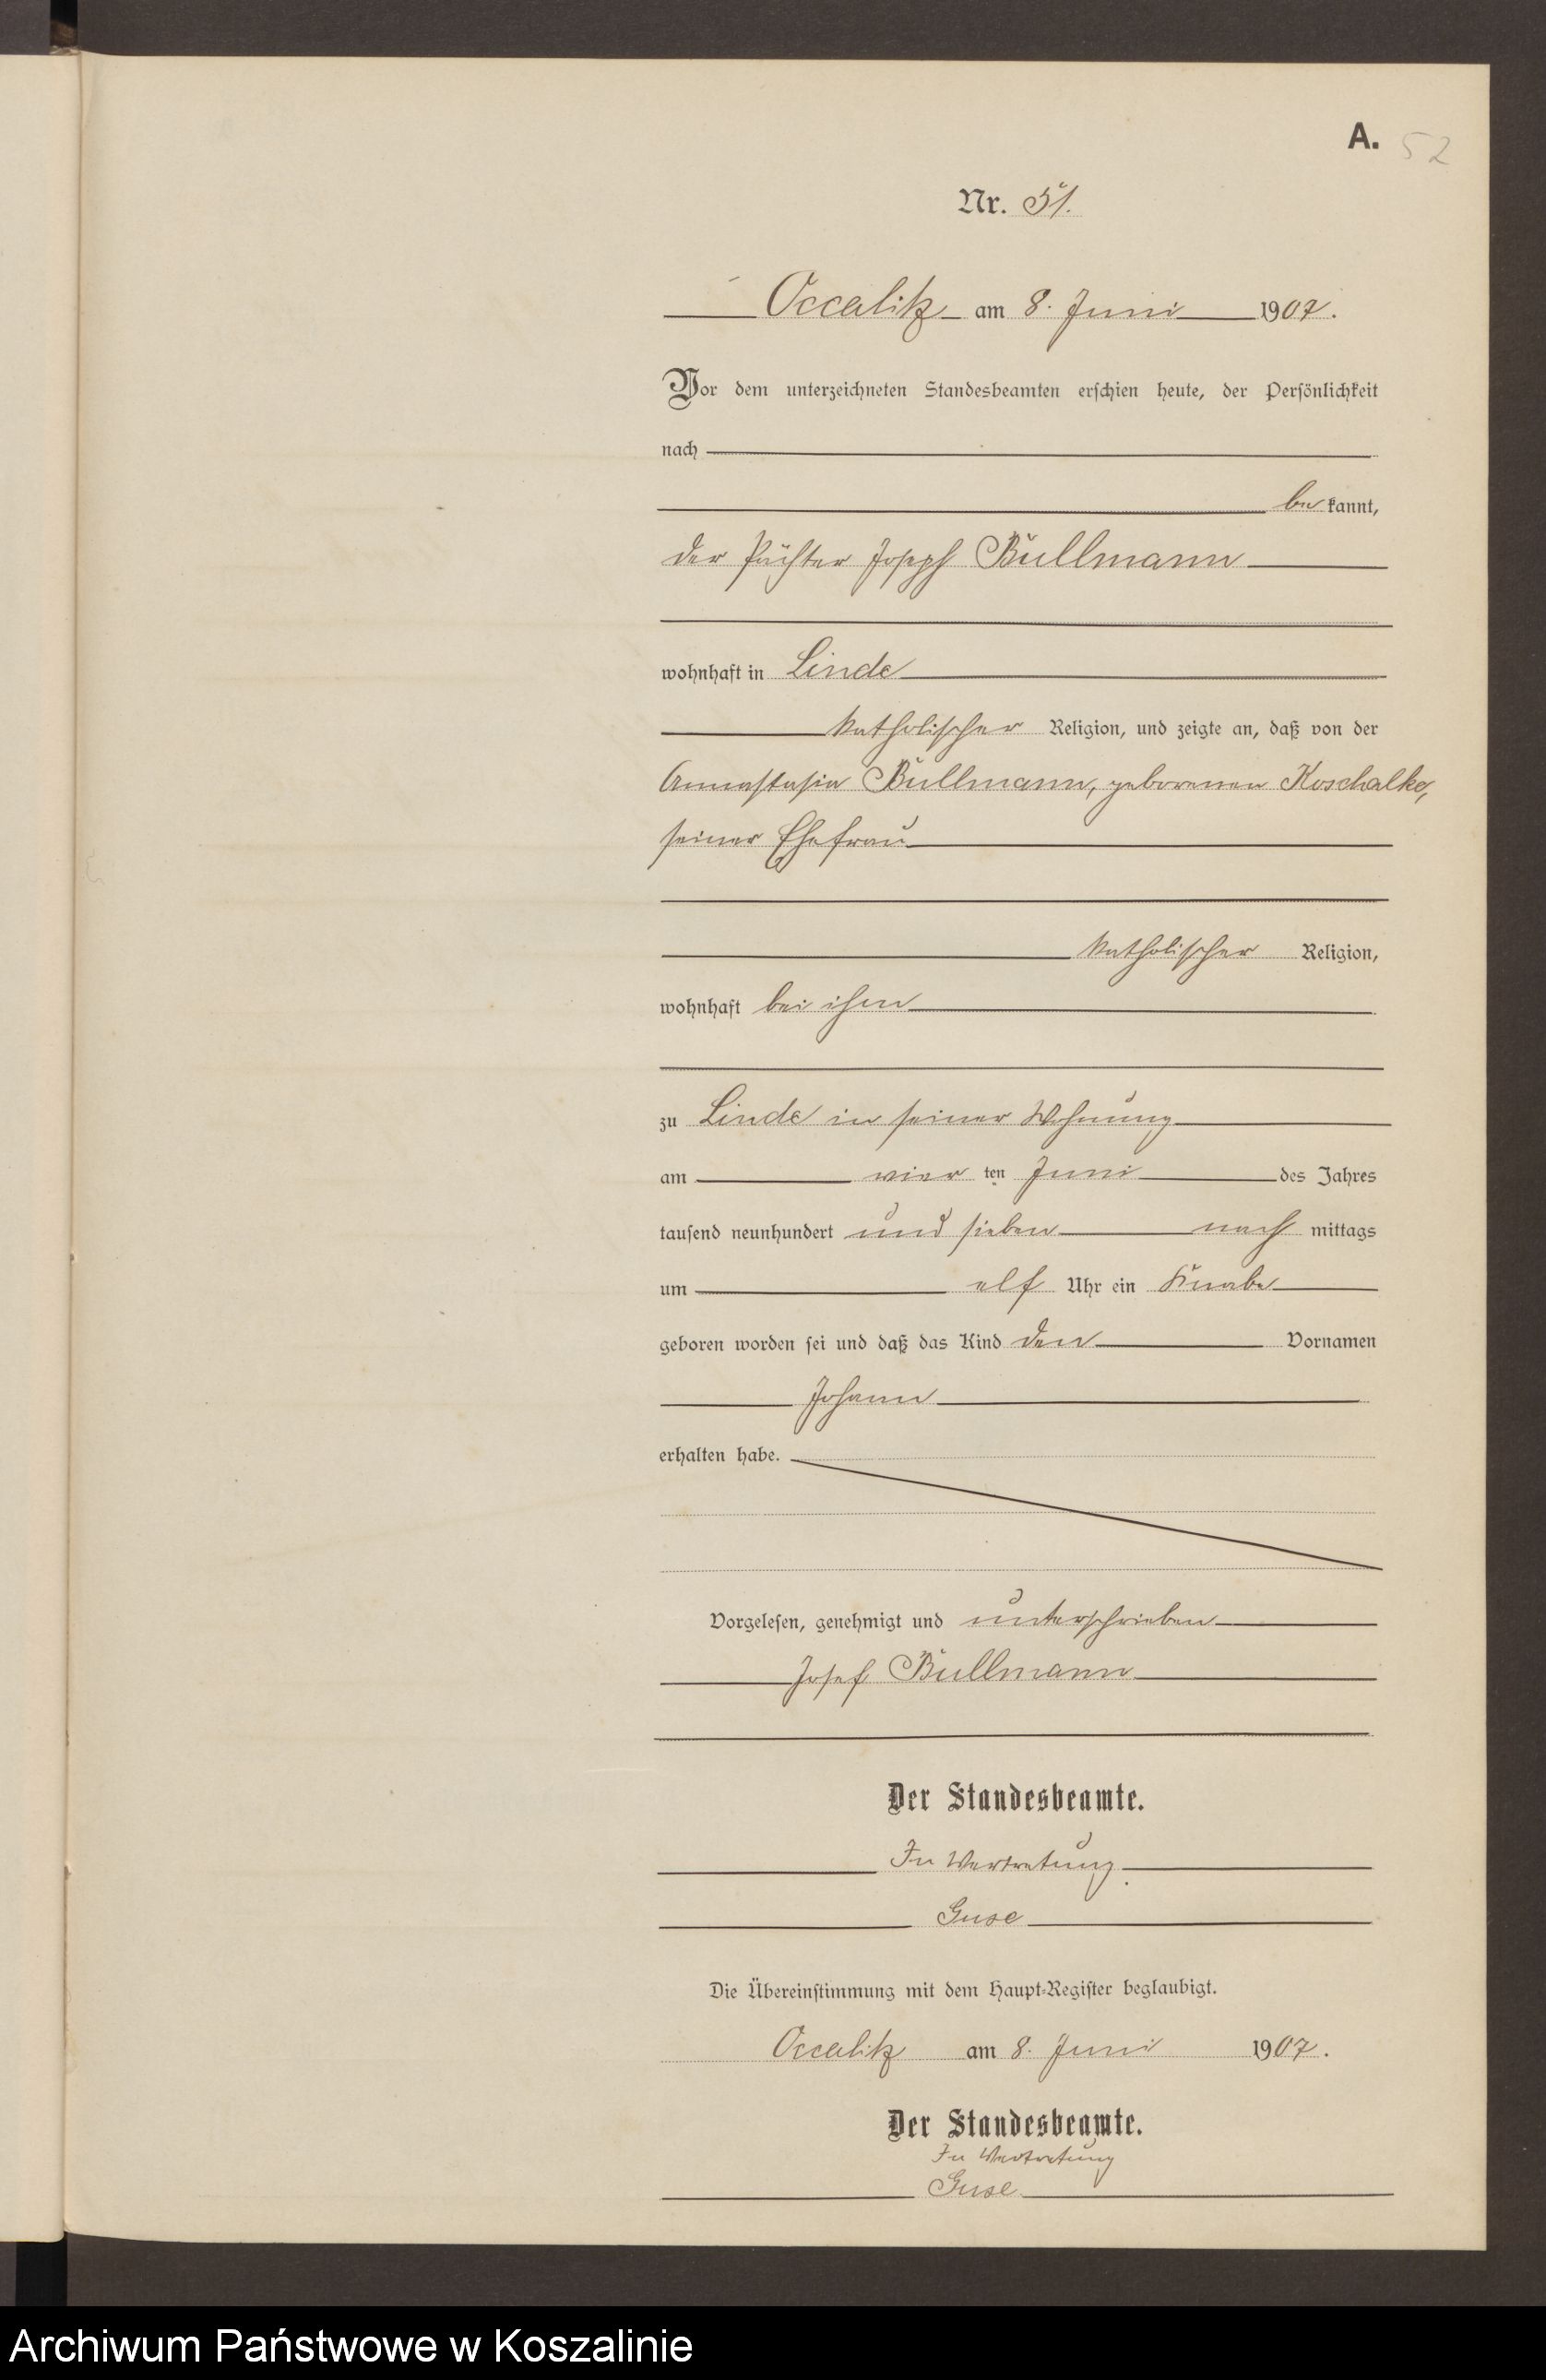 A. 52
Nr. 51.
Occalitz am 8. Juni 1907.
Vor dem unterzeichneten Standesbeamten erschien heute, der Persönlichkeit
nach
be kannt,
der Pächter Joseph Bullmann
wohnhaft in Linde
katholischer Religion, und zeigte an, daß von der
Annastasia Bullmann, geborenen Koschalke,
seiner Ehefrau
katholischer Religion,
wohnhaft bei ihm
zu Linde in seiner Wohnung
am vier ten Juni des Jahres
tausend neunhundert und sieben nach mittags
um elf Uhr ein Knabe
geboren worden sei und daß das Kind den Vornamen
Johann
erhalten habe.
Vorgelesen, genehmigt und unterschrieben
Josef Bullmann
Der Standesbeamte.
In Vertretung.
Guse
Die Übereinstimmung mit dem Haupt-Register beglaubigt.
Occalitz am 8. Juni 1907.
Der Standesbeamte.
In Vertretung
Guse
Archiwum Państwowe w Koszalinie